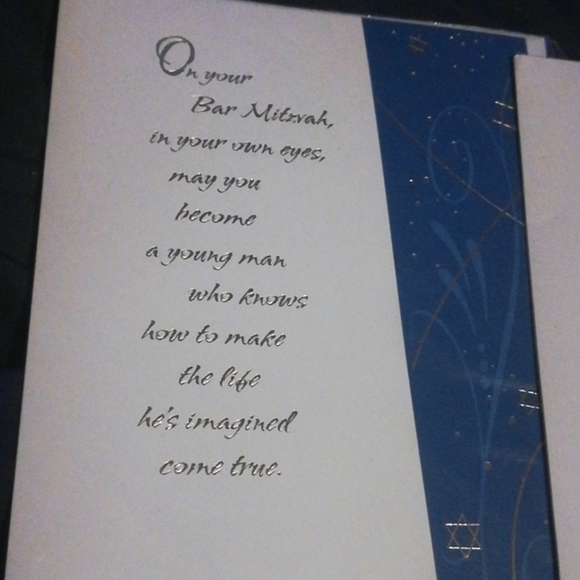 On your
Bar Mitzvah,
in your own eyes,
may you
become
a young man
who knows
how to make
the life
he's imagined
come true.